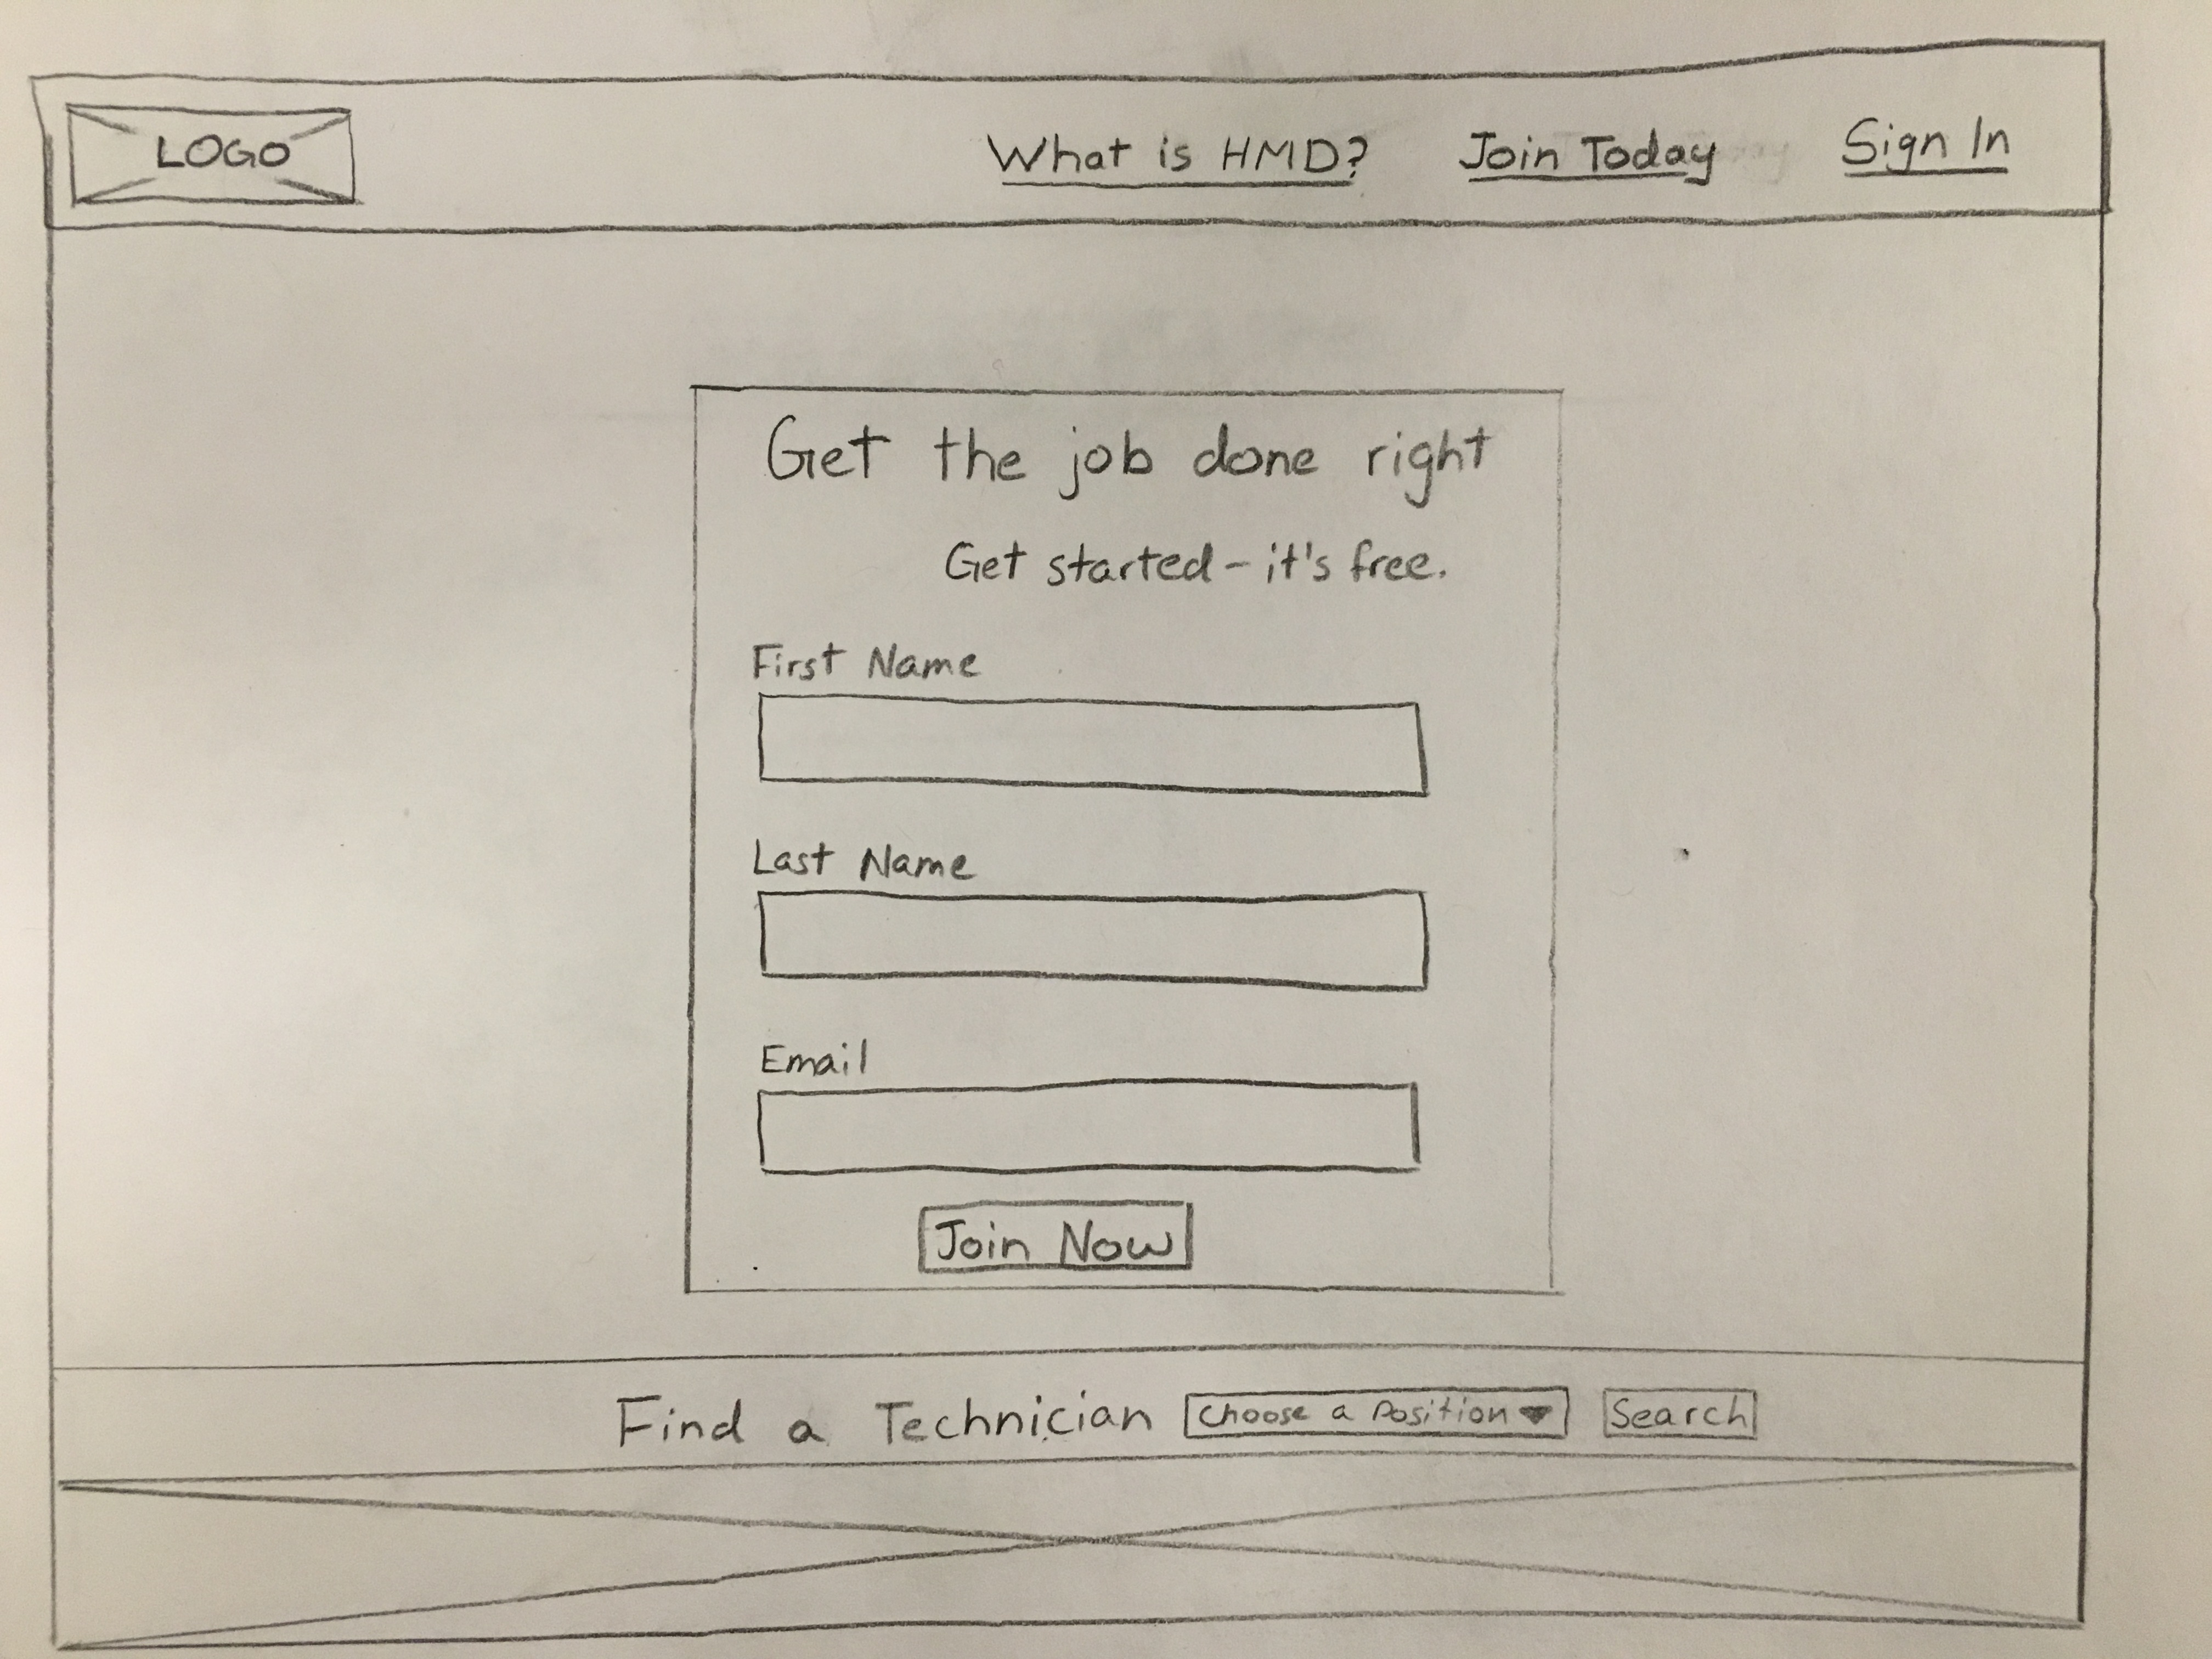 LOGO What is HMD? Join Today Sign In
Get the job done right
Get started - it's free.
First Name
Last Name
Email
Join Now
Find a Technician Choose a Position Search